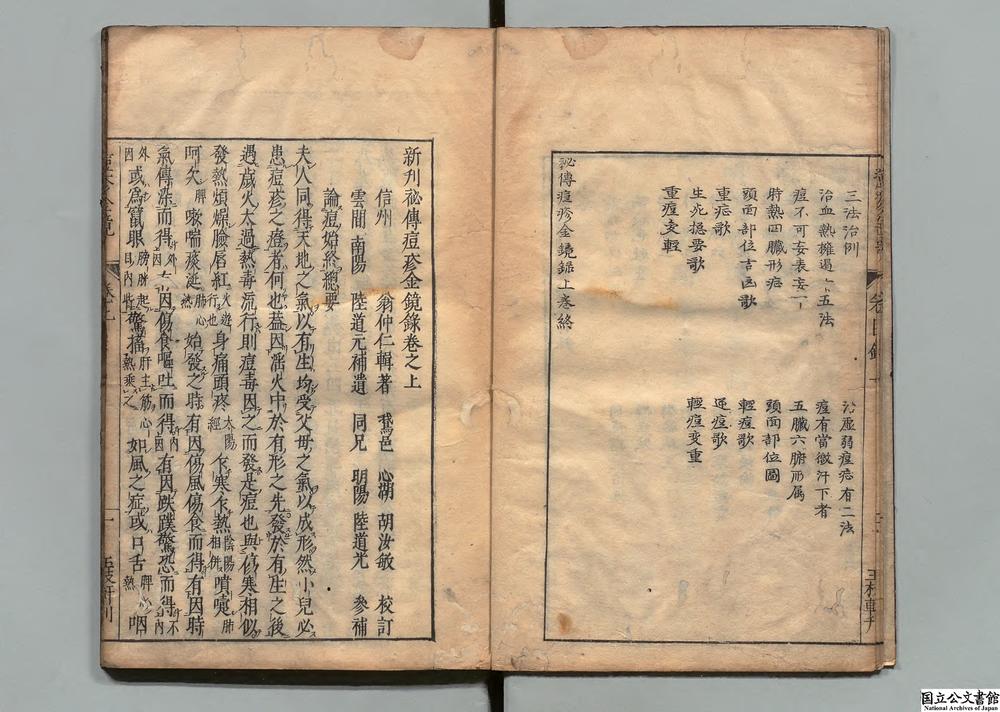 三法治例
治血熱擁遏 五法 治虛弱痘瘡有二法
痘不可妄表妄下 痘有當微汗下者
時熱四臟形症 五臟六腑所属
頭面部位吉凶歌 頭面部位圖
重痘歌 輕痘歌
生死摠要歌 逆痘歌
重痘变輕 輕痘变重
秘傳痘疹金鏡錄上卷終
卷目錄
玉枝軒刊
新刋祕傳痘疹金鏡錄卷之上
信州 翁仲仁輯著 鵞邑 心湖 胡汝敏 校訂
雲間 南陽 陸道元補遺 同兄 明陽 陸道光 參補
論痘始終總要
夫人同得天地之氣以有生均受父母之氣以成形然小兒必
患痘疹之證者何也蓋因滛火中於有形之先發於有生之後
遇歲火太過熱毒流行則痘毒因之而發是痘也與傷寒相似
發熱煩燥臉唇紅火遊行也身痛頭疼太陽經乍寒乍熱陰陽相併噴嚏肺
呵欠脾嗽喘痰涎肺心熱始發之時有因傷風傷食而得有因時
氣傳染而得外因有因傷食嘔吐而得内因有因跌蹼驚恐而得不内
外因或爲竄眼驚搐肝主筋心熱乘之如風之症或口舌脾心熱咽
卷上
一